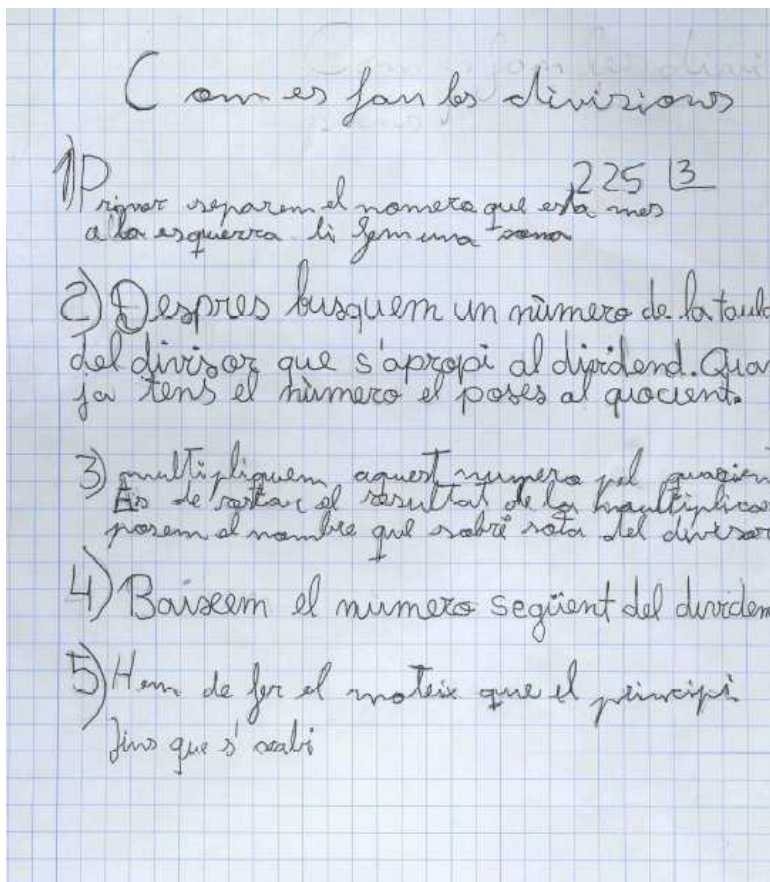 Com es fan les divisions
225 |3
1) Primer separem el nomero que esta mes
a la esquerra li fem una
2) Despres busquem un número de la taula
del divisor que s'apropi al dividend. Quan
ja tens el número el poses al quocient.
3) multipliquem aquest numero pel quocien
Es de restar el resultat de la multiplica
posem el nombre que sobré sota del divisor
4) Baixem el número següent del dividen
5) Hem de fer el mateix que el principi
fins que s'acabi